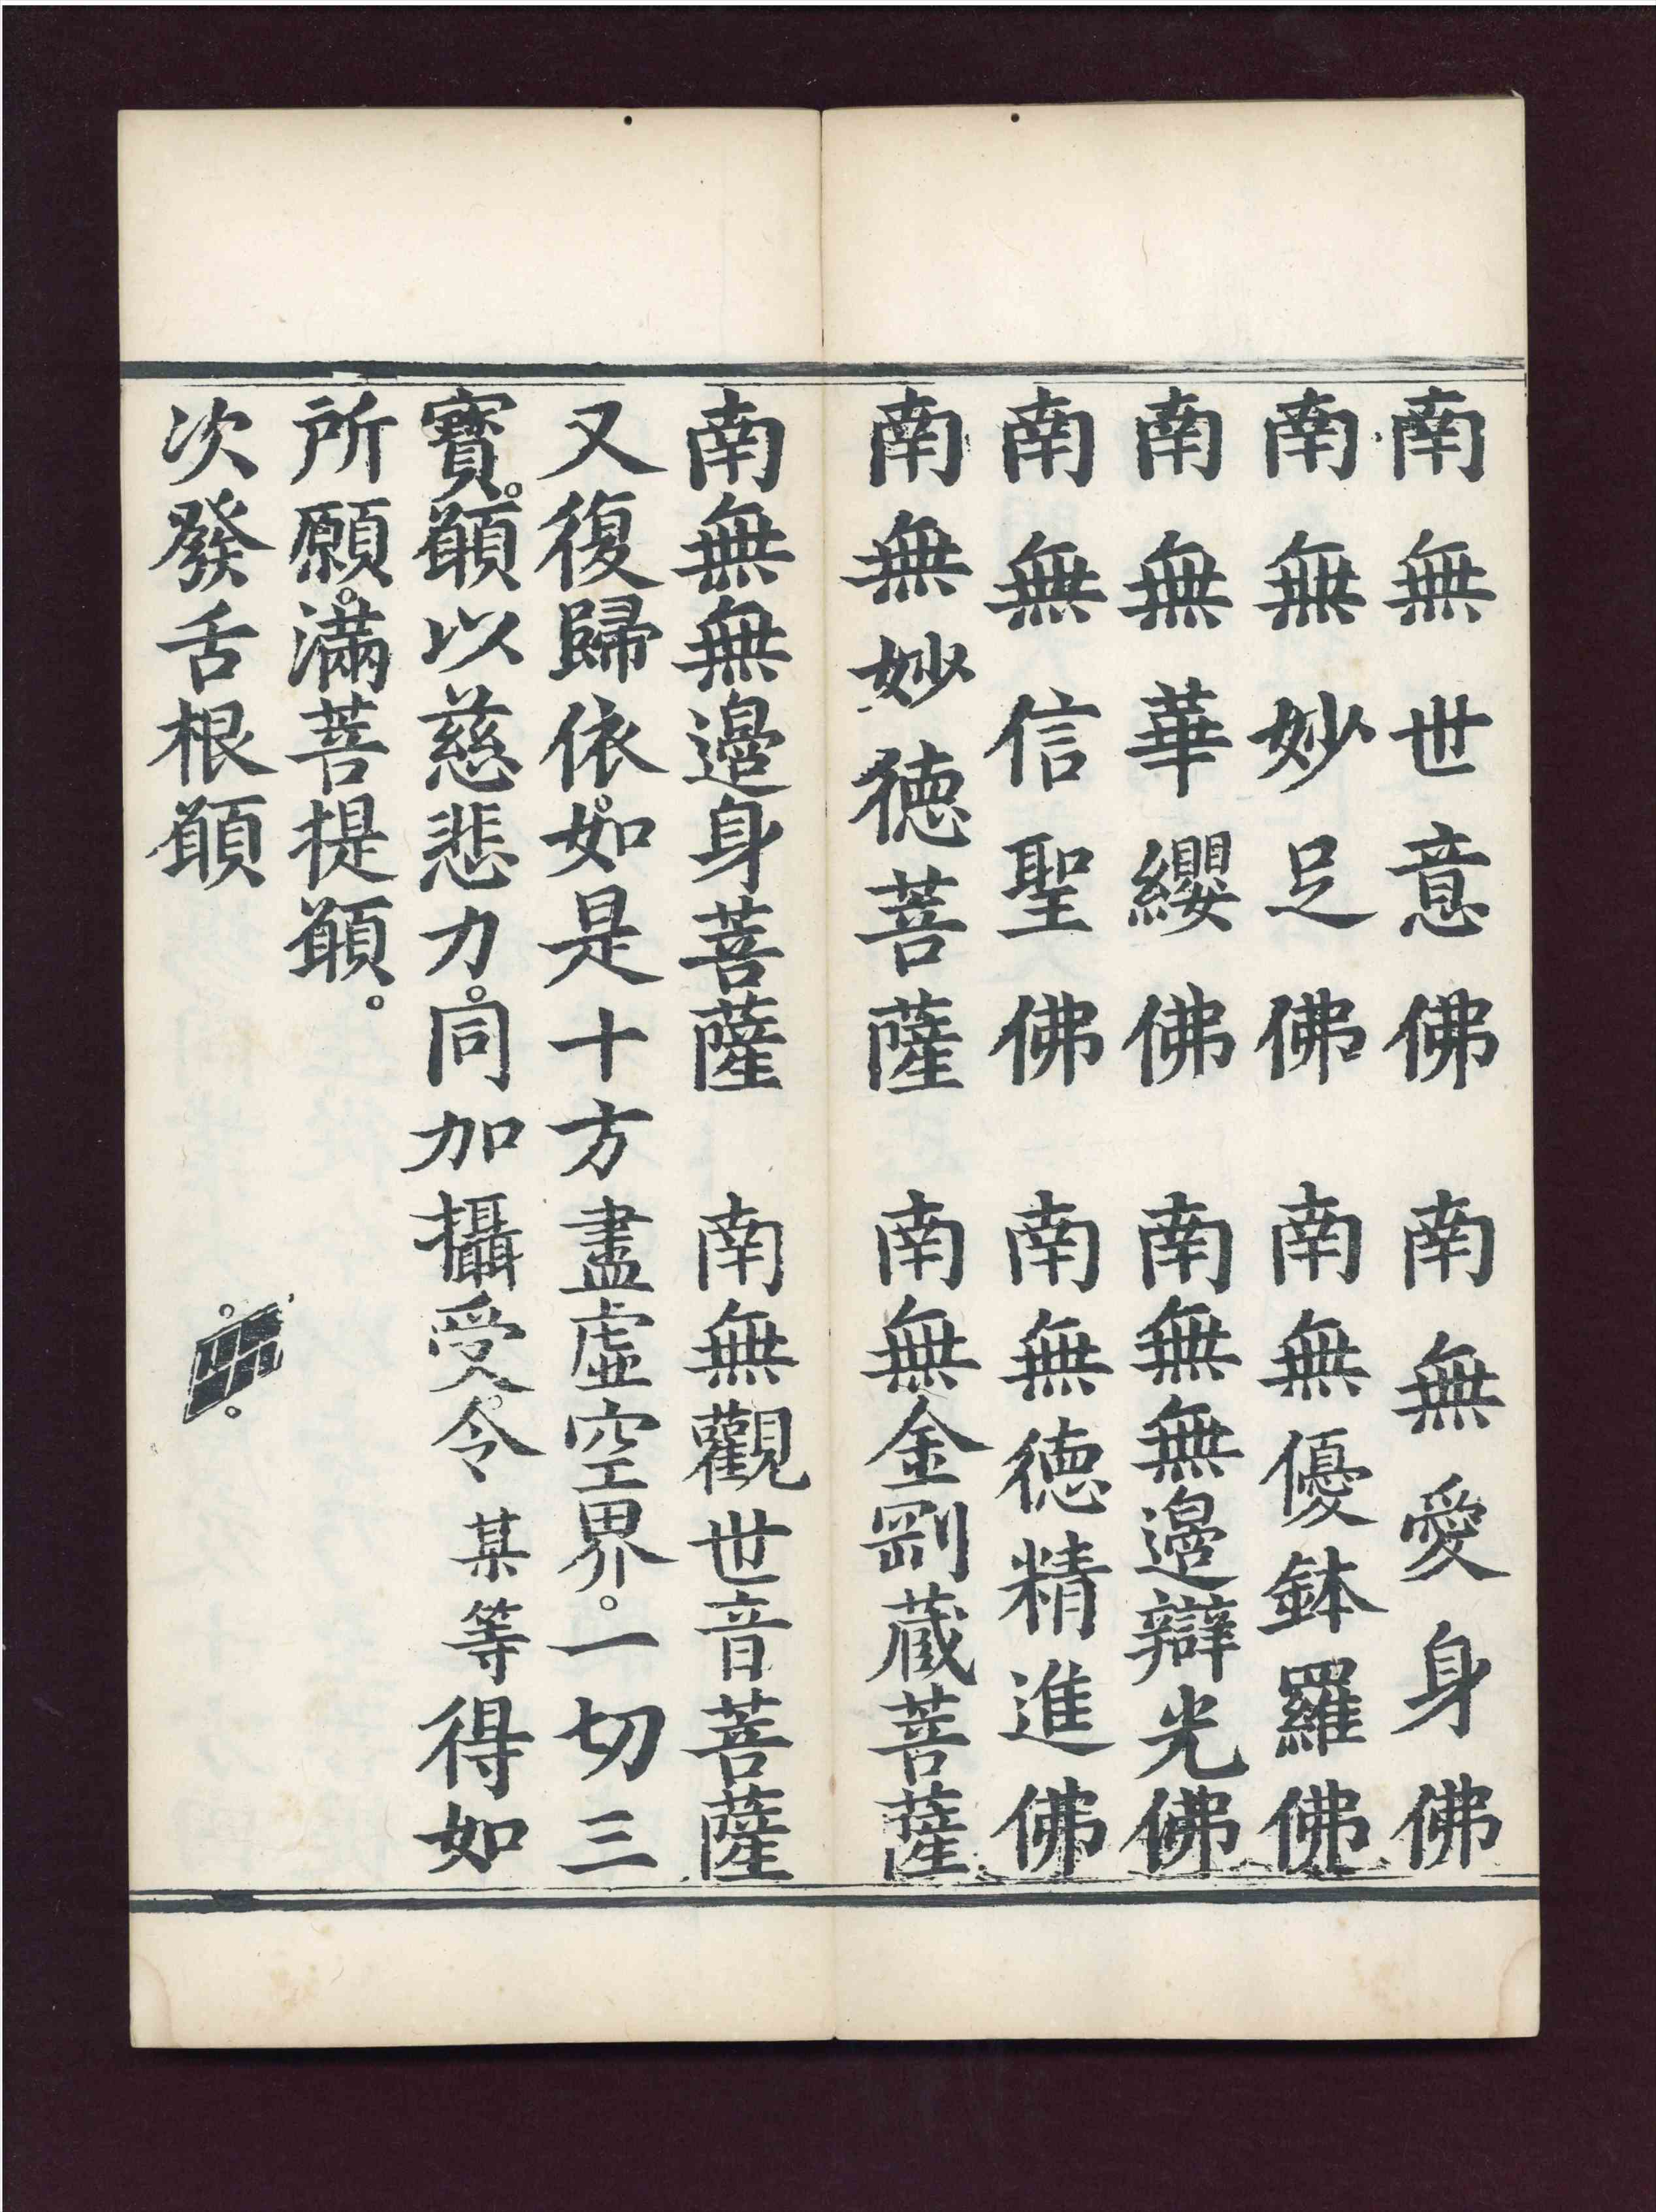 南無世意佛　南無愛身佛
南無妙足佛　南無優鉢羅佛
南無華纓佛　南無無邊辯光佛
南無信聖佛　南無德精進佛
南無妙德菩薩　南無金剛藏菩薩
南無無邊身菩薩　南無觀世音菩薩
又復歸依。如是十方盡虛空界。一切三
寶。願以慈悲力。同加攝受。令某等得如
所願。滿菩提願。
次發舌根願